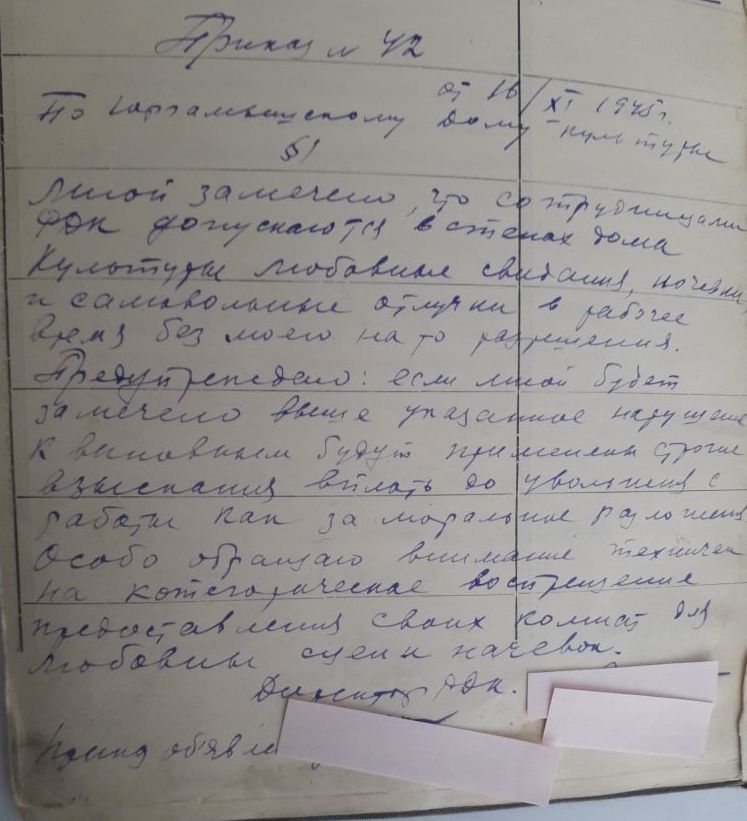 Приказ н 42
от 16/XI 1945г.
По Юргамышскому Дому культуры
§1
Мной замечено, что сотрудницами
РДК допускаются в стенах дома
Культуры любовные свидания, ночевки,
и самовольные отлучки в рабочее
время без моего на то разрешения.
Предупреждаю: если мной будет
замечено выше указанное нарушение
к виновным будут применены строгие
взыскания вплоть до увольнения с
работы как за моральное разложения
Особо обращаю внимание техничек
на категорическое воспрещение
предоставления своих комнат для
любовных сцен и начевок.
Директор РДК.
Приказ объявле